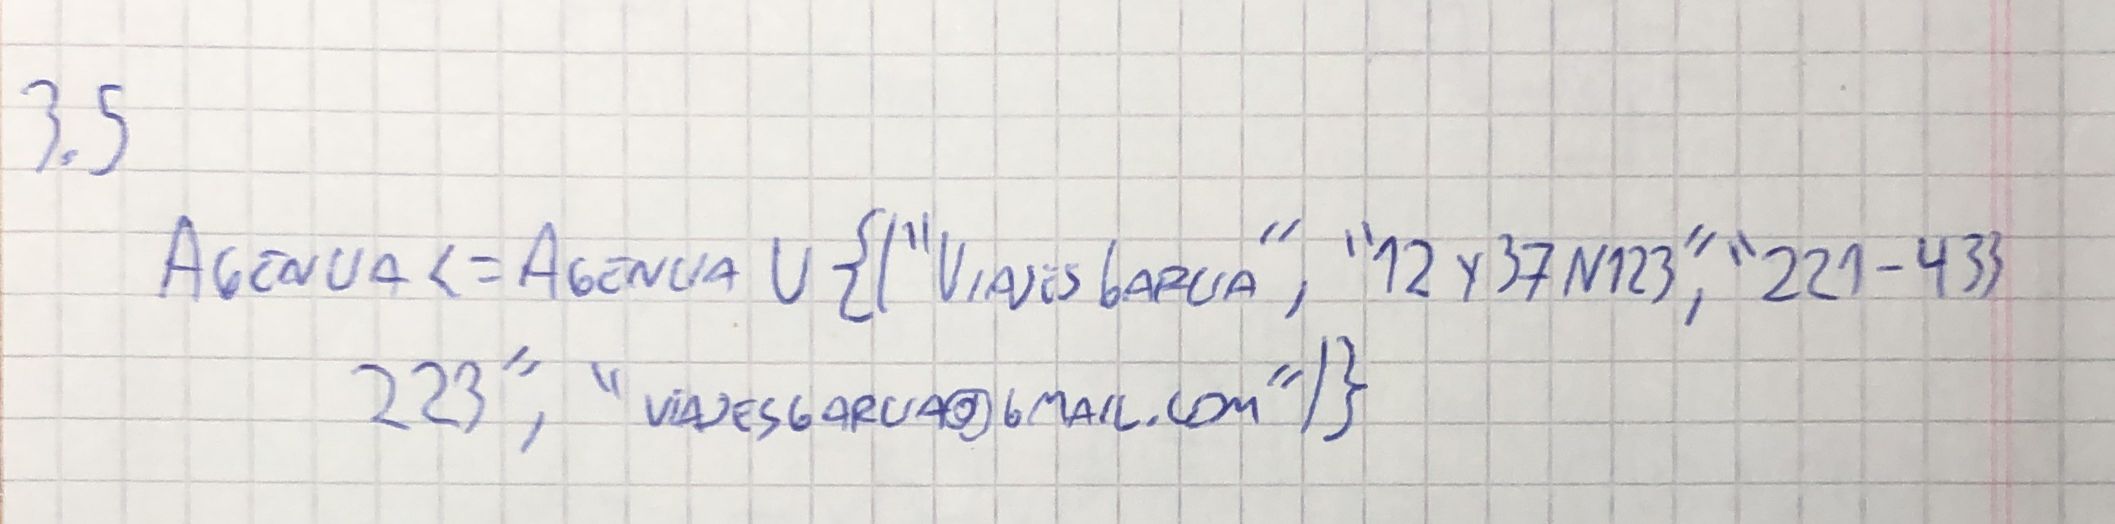 3.5
AGENCIA <= AGENCIA U {("VIAJES GARCIA", "12 Y 37 N123", "221-433
223", "VIAJESGARCIA@GMAIL.COM")}